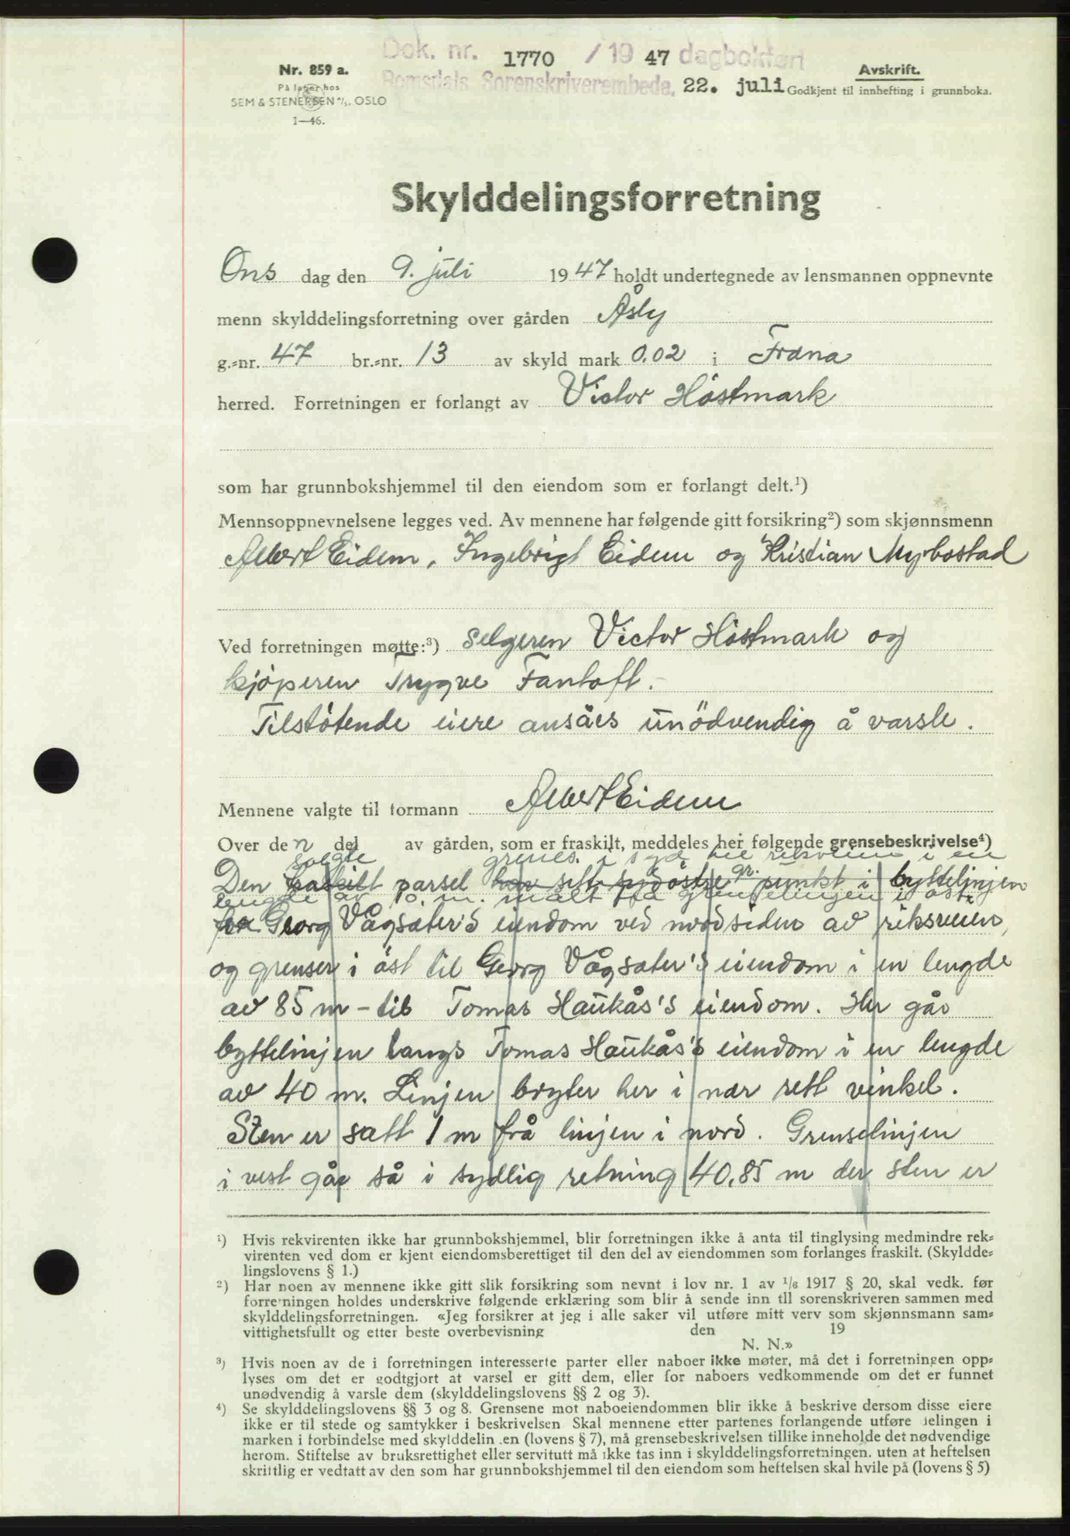 Dok. nr. 1770 / 19 47 dagbokført
Romsdals Sorenskriverembede, 22. juli
Nr. 859 a.
På lager hos
SEM & STENERSEN A/S. OSLO
1—46.
Avskrift.
Godkjent til innhefting i grunnboka.
Skylddelingsforretning
Ons dag den 9. juli 1947 holdt undertegnede av lensmannen oppnevnte
menn skylddelingsforretning over gården Åsly
g.-nr. 47 br.-nr. 13 av skyld mark 0.02 i Fræna
herred. Forretningen er forlangt av Victor Höstmark
som har grunnbokshjemmel til den eiendom som er forlangt delt.¹)
Mennsoppnevnelsene legges ved. Av mennene har følgende gitt forsikring²) som skjønnsmenn
Albert Eidem, Ingebrigt Eidem og Kristian Myrbostad
Ved forretningen møtte:³) selgeren Victor Höstmark og
kjöperen Trygve Fantoft.
Tilstötende eiere ansåes unödvendig å varsle.
Mennene valgte til formann Albert Eidem
Over den del av gården, som er fraskilt, meddeles her følgende grensebeskrivelse⁴)
solgte grenes. i syd til riksveien i en
Den fraskilt parsel har sitt sydöstre gr. punkt i byttelinjen
lengde av 10 m. målt fra grenselinjen i öst
fra Georg Vågsæter's eiendom ved nordsiden av riksveien,
og grenser i öst til Georg Vågsæter's eiendom i en lengde
av 85 m - til Tomas Haukås's eiendom. Her går
byttelinjen langs Tomas Haukås's eiendom i en lengde
av 40 m. Linjen bryter her i nær rett vinkel.
Sten er satt 1 m frå linjen i nord. Grenselinjen
i vest går så i sydlig retning 40,85 m der sten er
¹) Hvis rekvirenten ikke har grunnbokshjemmel, blir forretningen ikke å anta til tinglysing medmindre rek-
virenten ved dom er kjent eiendomsberettiget til den del av eiendommen som forlanges fraskilt. (Skyldde-
lingslovens § 1.)
²) Har noen av mennene ikke gitt slik forsikring som nevnt i lov nr. 1 av 1/6 1917 § 20, skal vedk. før
forretningen holdes underskrive følgende erklæring som blir å sende inn til sorenskriveren sammen med
skylddelingsforretningen. «Jeg forsikrer at jeg i alle saker vil utføre mitt verv som skjønnsmann sam-
vittighetsfullt og etter beste overbevisning den 19
N. N.»
³) Hvis noen av de i forretningen interesserte parter eller naboer ikke møter, må det i forretningen opp-
lyses om det er godtgjort at varsel er gitt dem, eller for naboers vedkommende om det er funnet
unødvendig å varsle dem (skylddelingslovens §§ 2 og 3).
⁴) Se skylddelingslovens §§ 3 og 8. Grensene mot naboeiendommen blir ikke å beskrive dersom disse eiere
ikke er til stede og samtykker i beskrivelsen Skal mennene etter partenes forlangende utføre delingen i
marken i forbindelse med skylddelin en (lovens § 7), må grensebeskrivelsen tillike inneholde det nødvendige
herom. Stiftelse av bruksrettighet eller servitutt må ikke tas inn i skylddelingsforretningen. uten at heftelsen
skriftlig er vedtatt av den som har grunnbokshjemmel til den eiendom som heftelsen skal hvile på (lovens § 5)